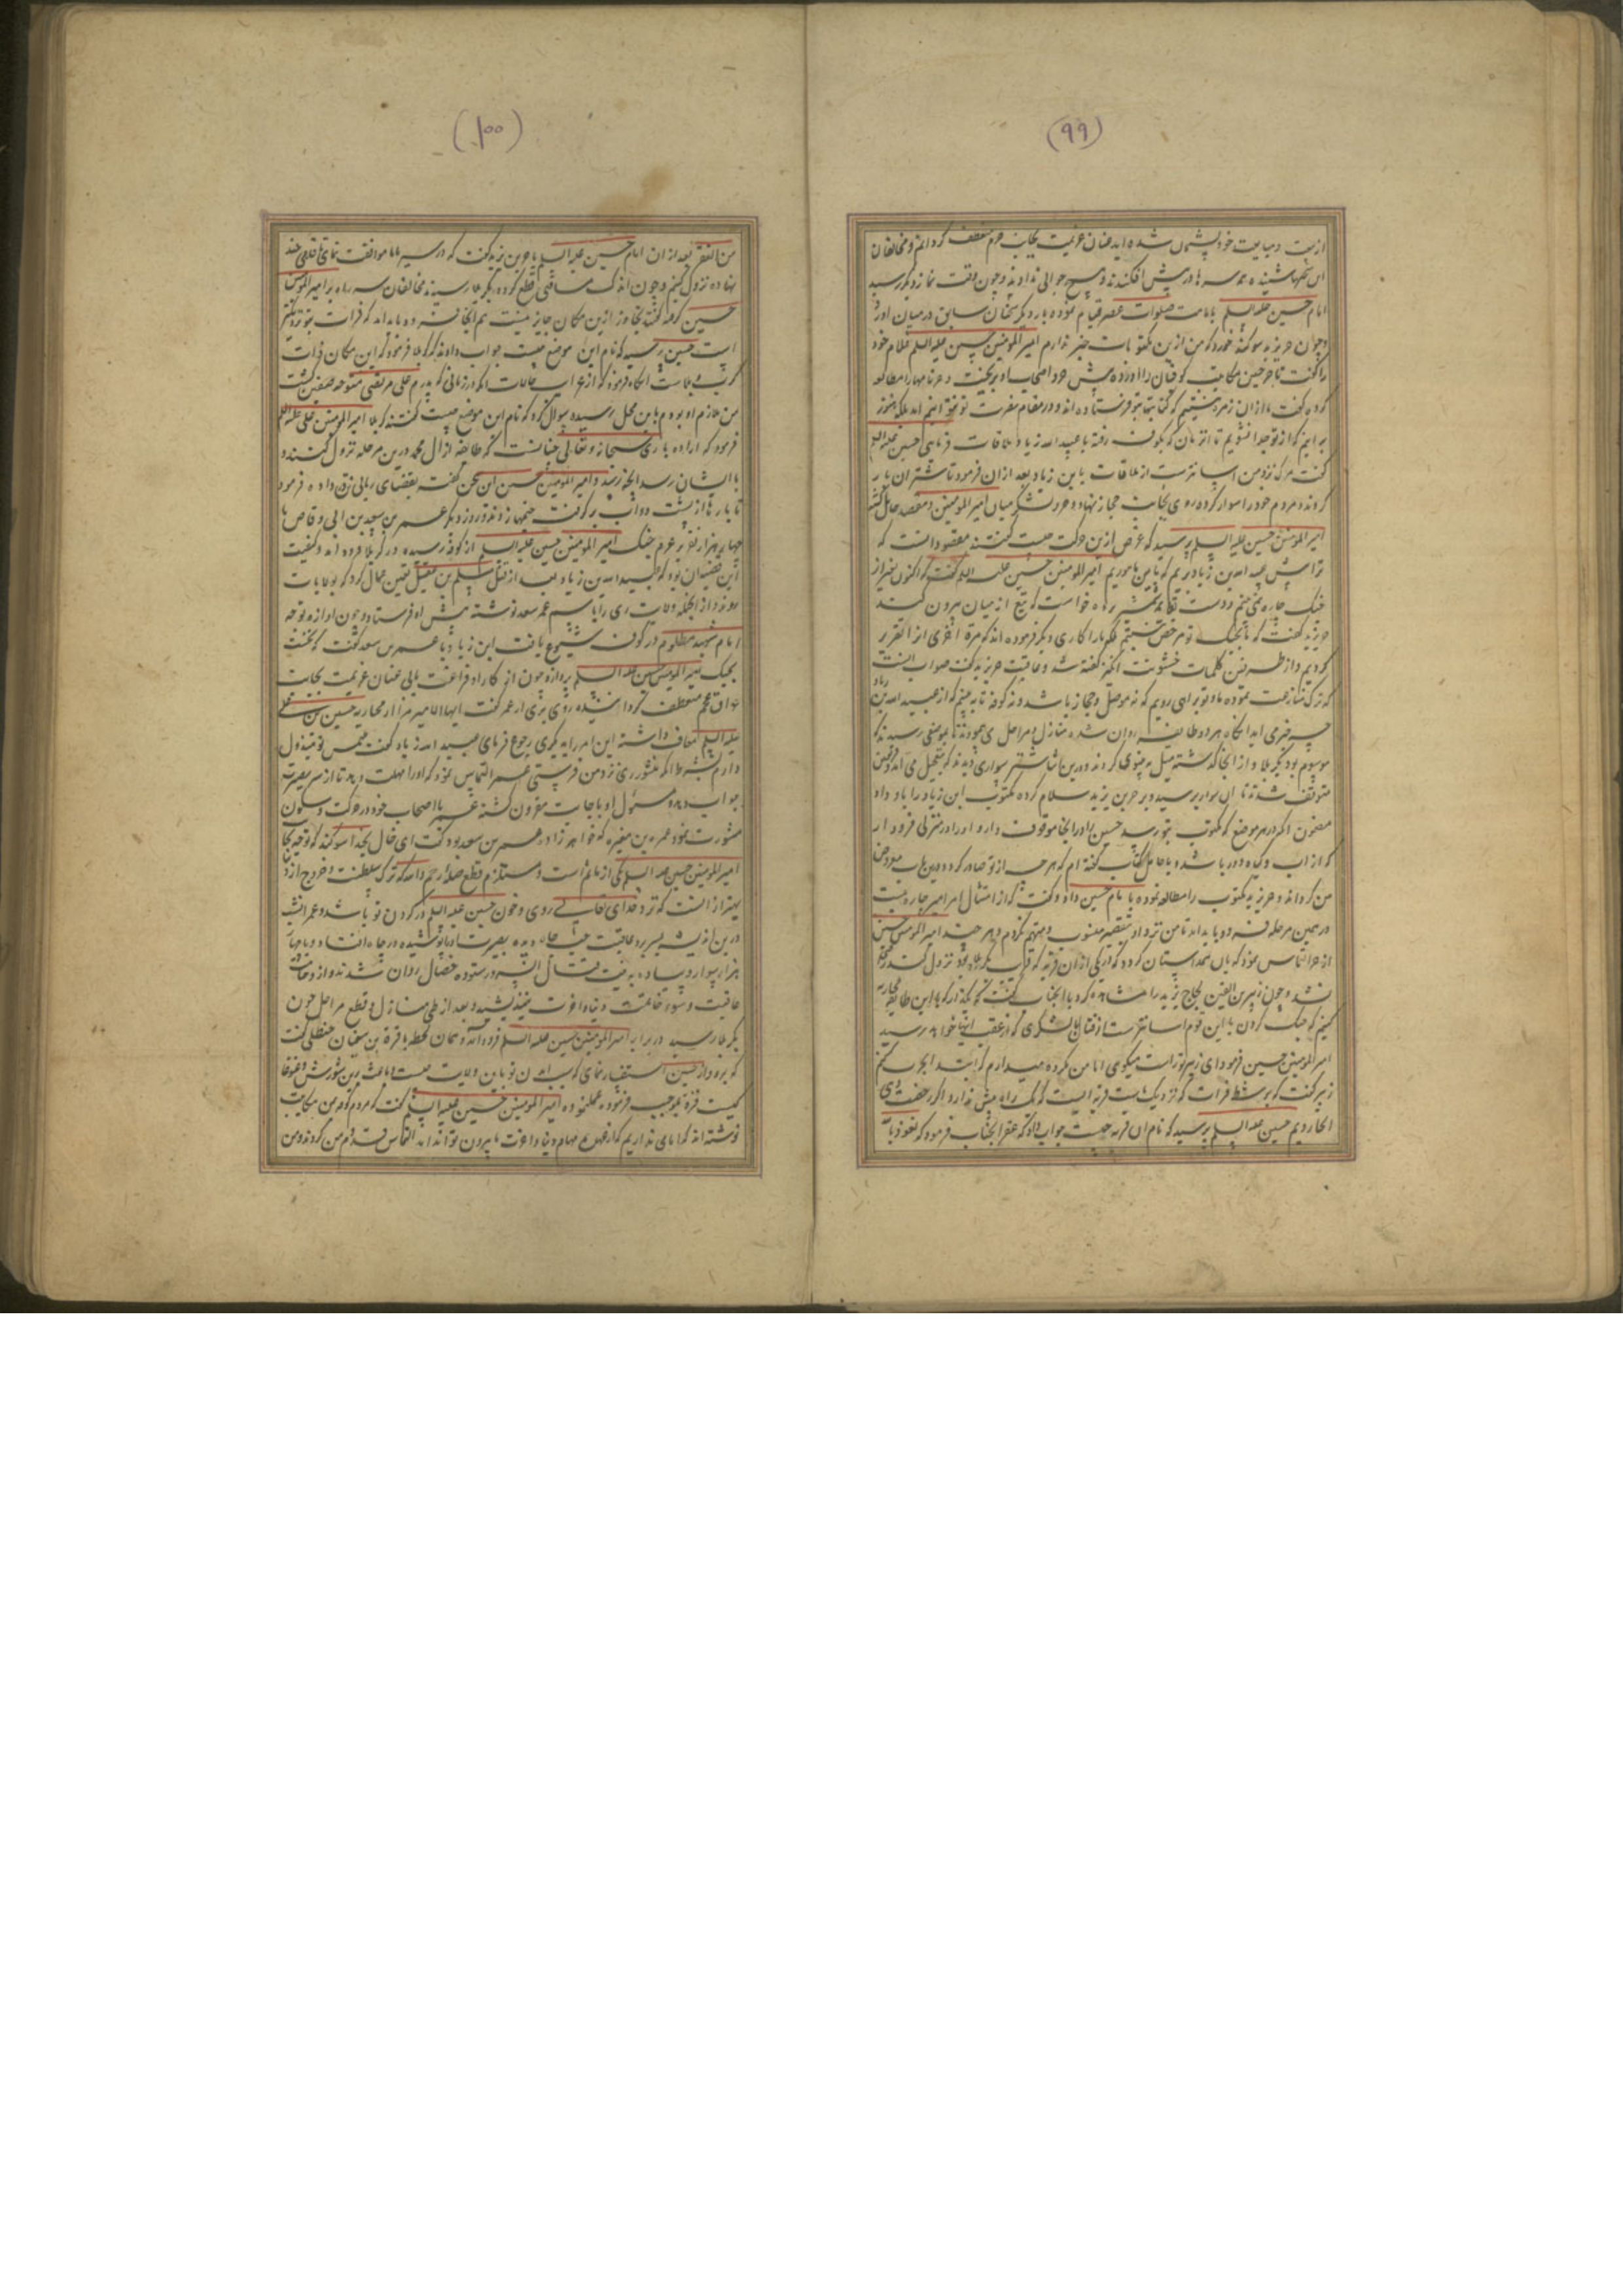 (٩٩)
از بیعت و متابعت خود پشیمان شده اید عنان عزیمت بجانب حرم منعطف گردانم و مخالفان
این سخنها شنیده همه سرها در پیش افکندند و هیچ جوابی ندادند و چون وقت نماز دیگر رسید
امام حسین علیه السلم باقامت صلوات عصر قیام نموده بار دیگر سخنان سابق در میان آورد
و چون حر یزید سوگند خورد که من ازین مکتوبات خبر ندارم امیر المومنین حسین علیه السلم غلام خود
را گفت تا خرجین مکاتیب کوفیان را آورده پیش حر و اصحاب او بریخت و حر نامها را مطالعه
کرده گفت ما از آن زمره نیستیم که کتابتها بتو فرستاده اند و در مقام نصرت تو
برآنیم که از تو جدا نشویم تا آن زمان که بکوفه رفته با عبید الله زیاد ملاقات فرمایی حسین علیه السلم
گفت مرگ نزد من آسانترست از ملاقات با ابن زیاد بعد از آن فرمود تا شتران بار
کردند و مردم خود را سوار کرده روی بجانب حجاز نهاد و حر و لشکر میان امیر المومنین و مقصد حایل گشتند
امیر المومنین حسین علیه السلم پرسید که غرض ازین حرکت چیست گفتند مقصود آنست که
ترا پیش عبید الله بن زیاد بریم که باین ماموریم امیر المومنین حسین علیه السلم گفت که اکنون بغیر از
جنگ چاره نمی بینم و دست بقایمه شمشیر برده خواست که تیغ از میان بیرون کشد
حر یزید گفت که ما بجنگ تو مرخص نیستیم بلکه ما را کاری دیگر فرموده اند که مرة اخری از آن تقریر
کردیم و از طرفین کلمات خشونت انگیز گفته شد و عاقبت حر یزید گفت صواب آنست
که ترک منازعت نموده ما و تو براهی رویم که نه موصل و حجاز باشد و نه کوفه تا ببینم که از عبید الله بن زیاد
چه خبر می آید آنگاه هر دو طایفه روان شده منازل و مراحل می پیمودند تا بموضعی رسیدند که
موسوم بود بکربلا و از آنجا گذشته میل بر نینوی کردند و درین اثنا شتر سواری دیدند که بتعجیل می آمد
متوقف شدند تا آن سوار برسید و بر حر بن یزید سلام کرده مکتوب ابن زیاد را باو داد
مضمون آنکه در هر موضع که مکتوب بتو رسد حسین را در آنجا موقوف دار و او را در منزلی فرود آر
که از آب و گیاه دور باشد و با حامل کتاب گفته ام که هر چه از تو صادر گردد درین باب معروض
من گرداند و حر یزید مکتوب را مطالعه نموده با امام حسین داد و گفت که از امتثال امر امیر چاره نیست
در همین مرحله فرود باید آمد تا من نزد او بتقصیر منسوب و متهم نگردم و هر چند امیر المومنین حسین
از حر التماس نمود که بآن همداستان گردد که در یکی از آن قریه که قریب بکربلا بود نزول کند
نشد و چون زهیر بن القین لجاج حر یزید را مشاهده کرد با آنجناب گفت که بگذار که با این طایفه محاربه
کنیم که جنگ کردن با این قوم آسانترست از قتال با لشکری که از عقب اینها خواهد رسید
امیر المومنین حسین فرمود ای زهیر تو راست میگویی اما من مکروه میدارم که ابتدا بحرب کنم
زهیر گفت که بر شط فرات که نزدیک ماست قریه ایست که یک راه بیش ندارد اگر رخصت دهی
آنجا رویم حسین علیه السلم پرسید که نام آن قریه چیست جواب داد که عقر آنجناب فرمود که نعوذ بالله
(١٠٠)
من العقر بعد از آن امام حسین علیه السلم با حر بن یزید گفت که در سیر با ما موافقت نمای تا قدمی چند
نهاده نزول کنیم و چون اندک مسافتی قطع کرده بکربلا رسیدند مخالفان سر راه بر امیر المومنین
حسین گرفته گفتند تجاوز ازین مکان جایز نیست هم اینجا فرود باید آمد که فرات بتو نزدیکتر
است حسین پرسید که نام این موضع چیست جواب دادند که کربلا فرمود که این مکان ذات
کرب و بلاست آنگاه فرمود که از غرایب حالات آنکه در زمانی که پدرم علی مرتضی متوجه صفین گشت
من ملازم او بودم باین محل رسیده سوال کرد که نام این موضع چیست گفتند کربلا امیر المومنین علی علیه السلم
فرمود که اراده باری سبحانه و تعالی چنانست که طایفه از آل محمد درین مرحله نزول کنند و
با ایشان رسد آنچه رسد و امیر المومنین حسین این سخن گفته بقضای ربانی رضا داده فرمود
تا بارها از پشت دواب برگرفته خیمها زدند و روز دیگر عمر بن سعد بن ابی وقاص با
چهار هزار نفر بعزم جنگ امیر المومنین حسین علیه السلم از کوفه رسیده در کربلا فرود آمد و کیفیت
این قضیه آن بود که عبید الله بن زیاد بعد از قتل مسلم بن عقیل تعیین عمال کرد که بولایات
روند از آنجمله ولایت ری را باسم عمر سعد نوشته پیش او فرستاد و چون آوازه توجه
امام شهید مظلوم در کوفه شیوع یافت ابن زیاد با عمر بن سعد گفت که نخست
بجنگ امیر المومنین حسین علیه السلم پرداز و چون از کار او فراغت یابی عنان عزیمت بجانب
عراق عجم منعطف گردان
علیه السلم معاف داشته این امر را بدیگری رجوع فرمای عبید الله زیاد گفت ملتمس تو مبذول
دارم بشرط آنکه منشور ری نزد من فرستی عمر التماس نمود که او را مهلت دهد تا از سر بصیرت
جواب دهد مسئول او باجابت مقرون گشته عمر با اصحاب خود در حرکت و سکون
مشورت نمود عمر بن مغیره که خواهر زاده عمر بن سعد بود گفت ای خال بخدا سوگند که توجه بجنگ
امیر المومنین حسین علیه السلم یکی از مآثم است و مستلزم قطع صله ارحم والله که ترک سلطنت و خروج از دنیا
بهتر از آنست که نزد خدای تعالی روی و خون حسین علیه السلم در گردن تو باشد و عمر آن شب
درین اندیشه بسر برد عاقبت حب جاه دیده بصیرت او را پوشیده در چاه افتاد و با چهار
هزار سوار و پیاده به نیت قتال آن سرور ستوده خصال روان شدند و از وخامت
عاقبت و سوء خاتمت دنیا و آخرت نیندیشید و بعد از طی منازل و قطع مراحل چون
بکربلا رسید در برابر امیر المومنین حسین علیه السلم فرود آمد و همان لحظه با قرة بن سفیان حنظلی گفت
که برو و از حسین استفسار نمای که سبب آمدن تو باین ولایت چیست و باعث برین شورش و غوغا
کیست قره بموجب فرموده عمل نموده امیر المومنین حسین علیه السلم گفت که مردم کوفه بمن مکاتیب
نوشته اند که امامی نداریم که از عهده مهام دنیا و آخرت ما بیرون تواند آمد التماس قدوم من کردند و من